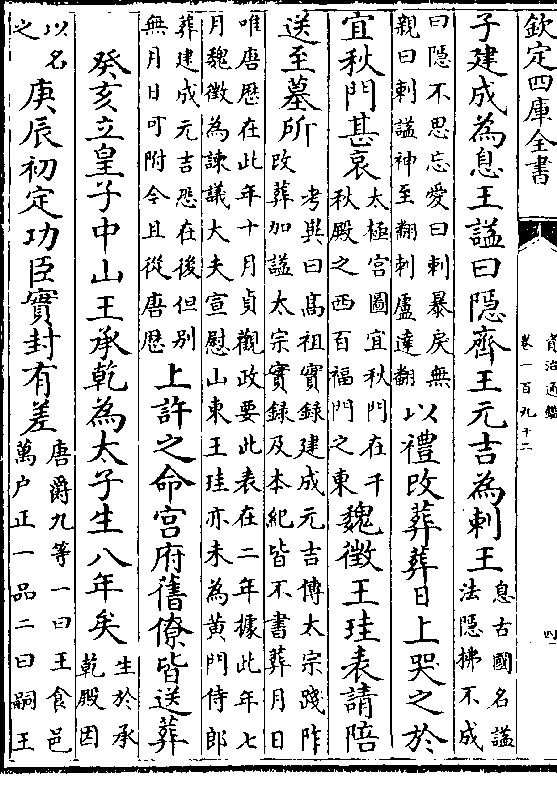 欽定四庫全書
資治通鑑
卷一百九十二
四
子建成為息王諡曰隱齊王元吉為剌王息古國名諡法隱拂不成
曰隱不思忘愛曰剌暴戾無親曰剌諡神至翻剌盧達翻以禮改葬葬日上哭之於
宜秋門甚哀太極宫圖宜秋門在千秋殿之西百福門之東魏徵王珪表請陪
送至墓所考異曰髙祖實録建成元吉傳太宗踐阼改葬加諡太宗實録及本紀皆不書葬月日
唯唐歴在此年十月貞觀政要此表在二年據此年七月魏徵為諫議大夫宣慰山東王珪亦未為黄門侍郎
葬建成元吉恐在後但别無月日可附今且從唐歴上許之命宫府舊僚皆送葬
癸亥立皇子中山王承乾為太子生八年矣生於承乾殿因
以名之庚辰初定功臣實封有差唐爵九等一曰王食邑萬户正一品二曰嗣王